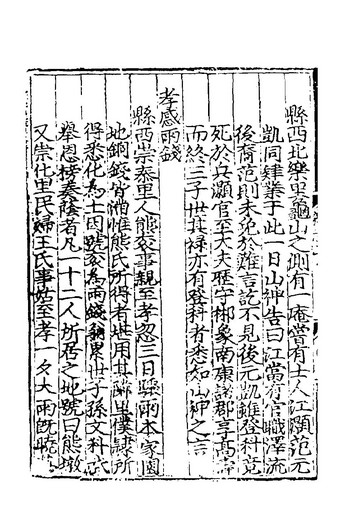 縣西北樂里龜山之側有一菴嘗有士人江灝范元
凱同肄業于此一日山神告曰江當有官職澤流
後裔范則未免於難言訖不見後元凱雖登科竟
死於兵灝官至大夫歷守郴象南康諸郡享高壽
而終三子世其祿亦有登科者悉知山神之言
孝感雨錢
縣西崇泰里人熊袞事親至孝忽三日縣雨本家園
地銅錢皆滿惟熊氏所得者世用其鄰里僕隸所
得悉化為土因號袞為雨錢翁累世子孫文科武
舉恩榜奏蔭者凡一十二人所居之地號曰熊墩
又崇化里民婦王氏事姑至孝一夕大雨既曉